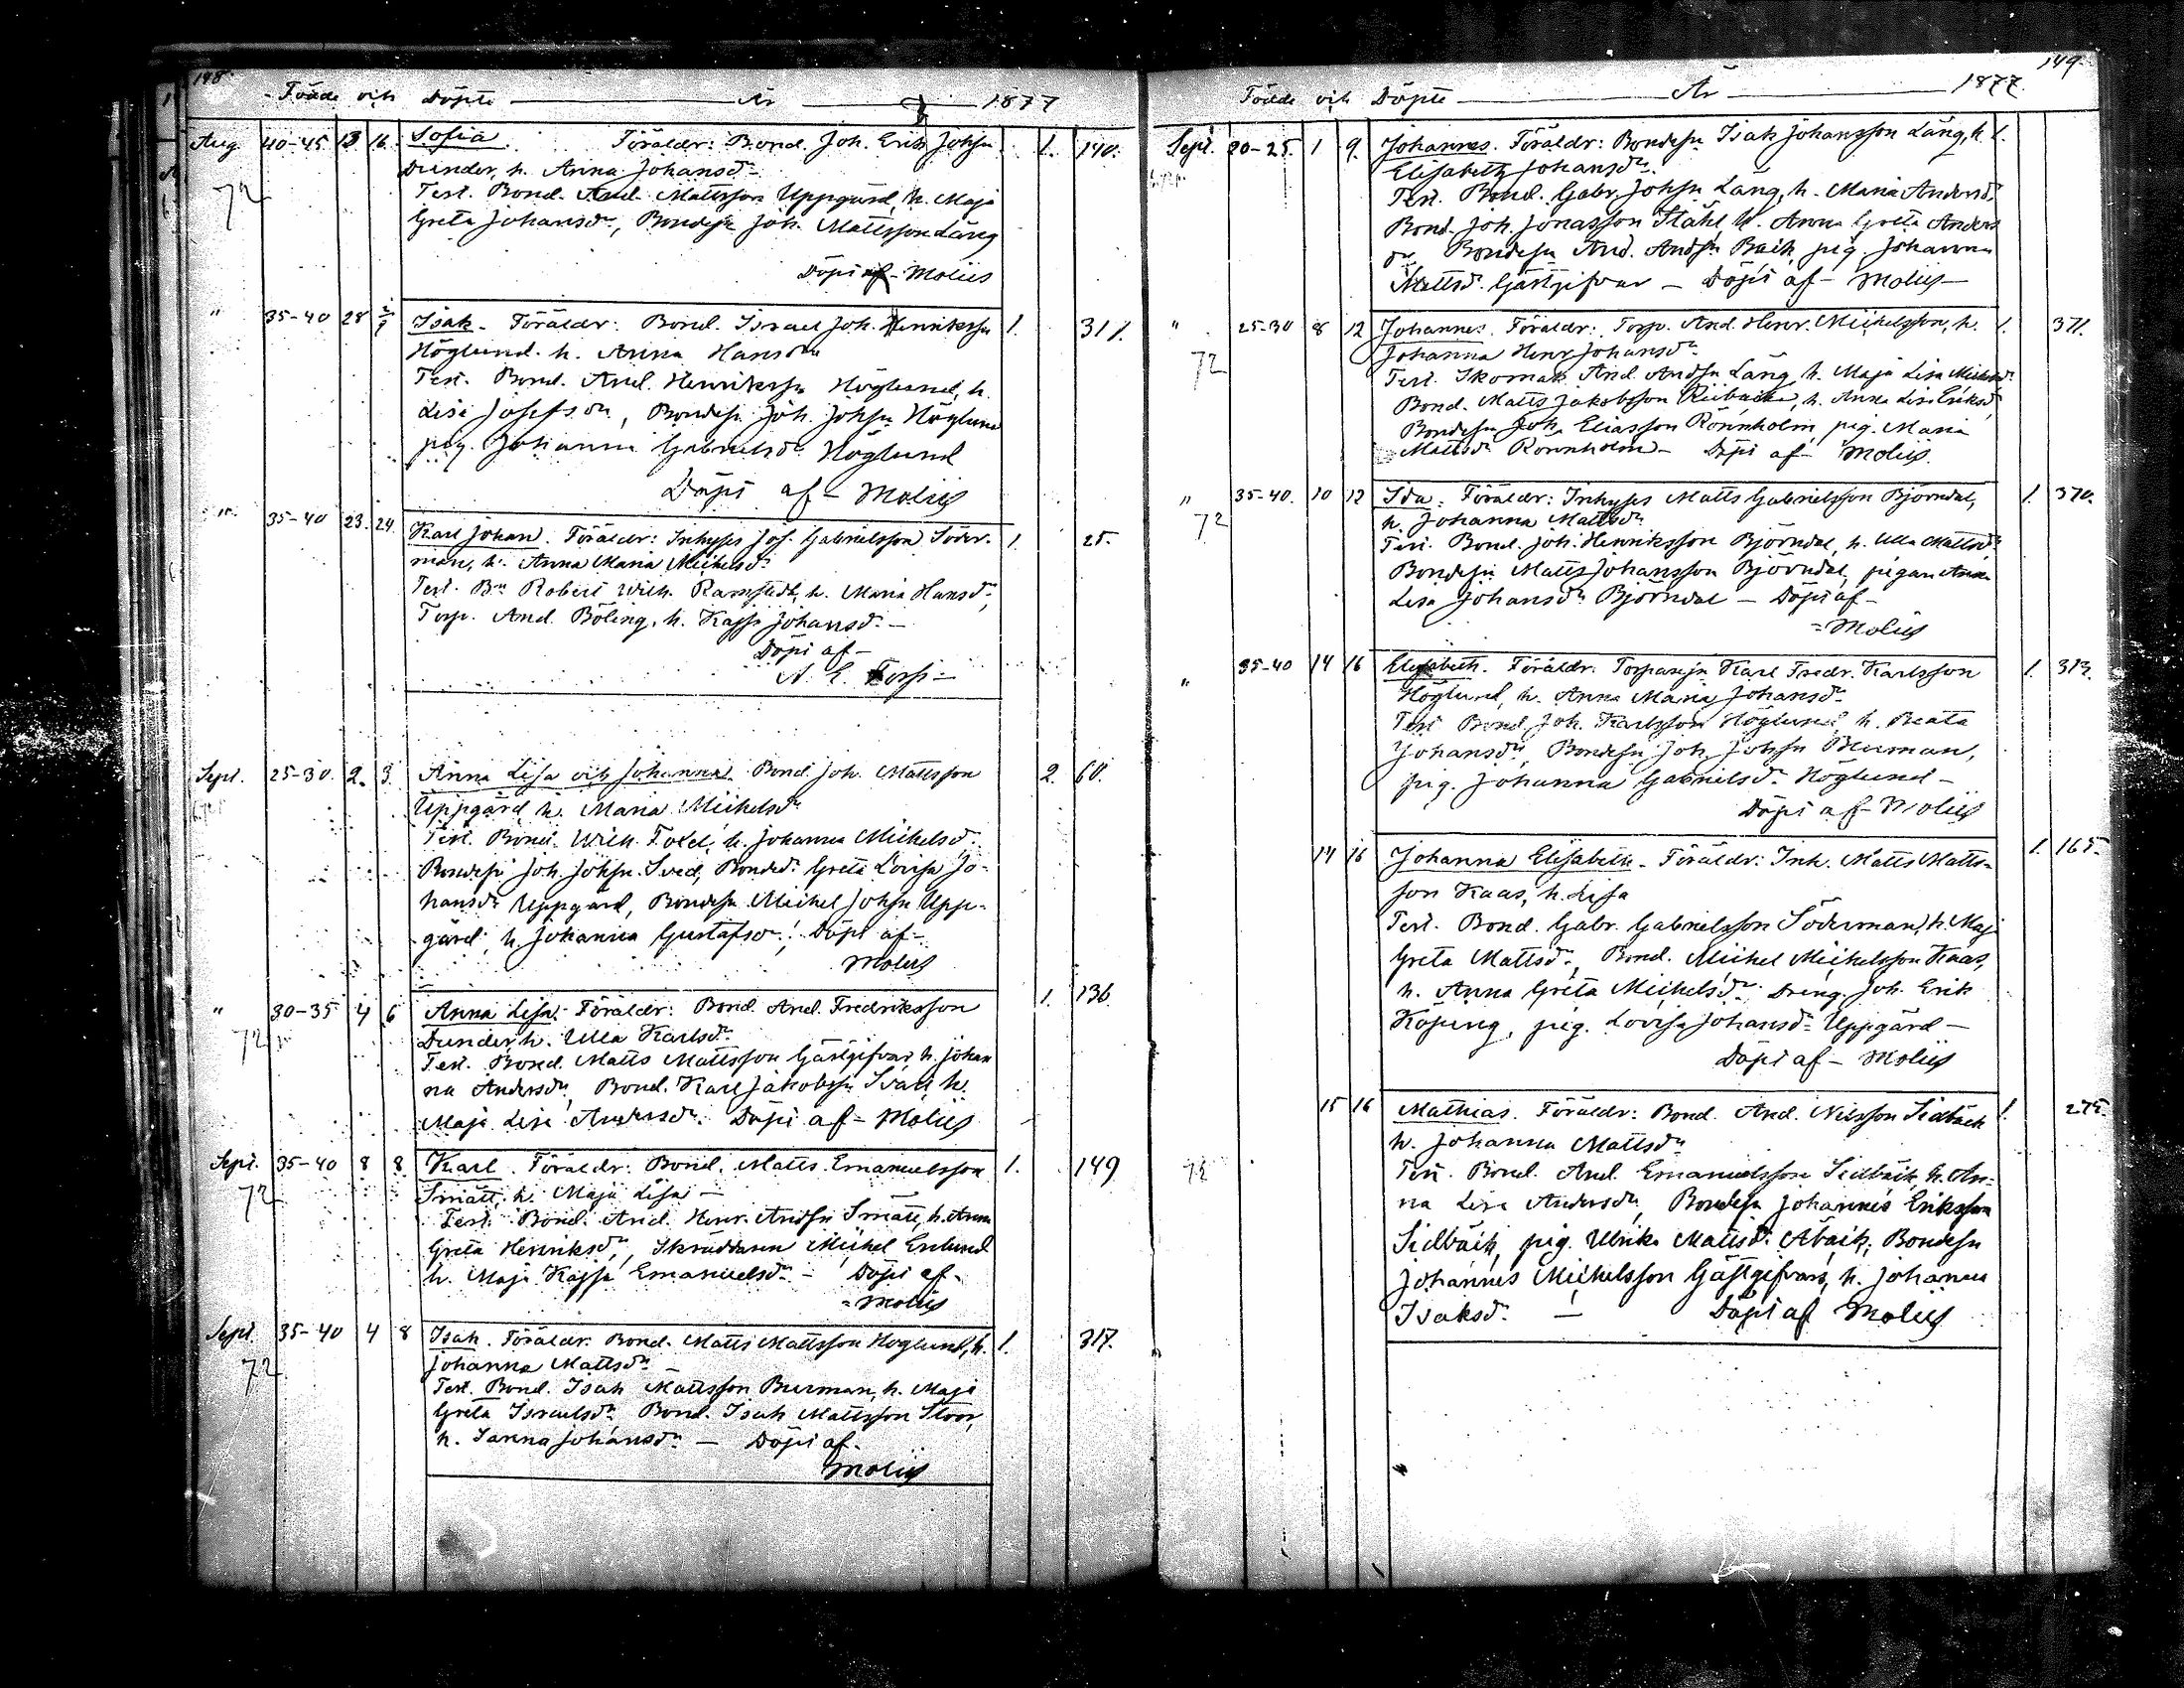 148.
Födde och Döpte År 1877
Aug. 40-45 13 16. Sofia. Föräldr: Bond. Joh. Erik Johsn 1. 140.
Dunder, h. Anna Johansdr
72 Test. Bond. And. Mattsson Uppgård, h. Maja
Greta Johansdr, Bondesn Joh. Mattsson Lång
Döpt af Molijs
" 35-40 28 2/9 Isak. Föräldr: Bond. Israel Joh. Henriksson 1. 311.
Höglund. h. Anna Hansdr
Test. Bond. And. Henriksson Höglund, h.
Lisa Josefsdr, Bondesn Joh. Johsn Höglund
pig. Johanna Gabrielsdr Höglund
Döpt af Molijs
" 35-40 23. 24. Karl Johan. Föräldr: Inhyses Joh. Gabrielsson Söder- 1. 25.
man, h. Anna Maria Mickelsdr
Test. Bn Robert Wilh. Ramstedt, h. Maria Hansdr,
Torp. And. Böling, h. Kajsa Johansdr.
Döpt af
A. E. Forss
Sept. 25-30. 2. 3. Anna Lisa och Johanna. Bond. Joh. Mattsson 2. 60.
Uppgård h. Maria Mickelsdr
Test. Bond. Wilh. h. Johanna Mickelsdr.
Bondesn Joh. Johsn Sved, Bondedr Greta Lovisa Jo-
hansdr Uppgård, Bondesn Mickel Johsn Upp-
gård, h. Johanna Gustafsdr. Döpt af
Molijs
" 30-35 4 6 Anna Lisa. Föräldr: Bond. And. Fredriksson 1. 136.
72 Dunder, h. Ulla Karlsdr
Test. Bond. Matts Mattsson Gästgifvar, h. Johan
na Andersdr, Bond. Karl Jakobsn Svari, h.
Maja Lisa Andersdr. Döpt af Molijs
Sept. 35-40 8 8 Karl. Föräldr: Bond. Matts Emanuelsson 1. 149
72 Smått, h. Maja Lisa
Test. Bond. And. Henr. Andsn Smått, h. Anna
Greta Henriksdr, Skräddaren Mickel Enlund
h. Maja Kajsa Emanuelsdr. Döpt af
Molijs
Sept. 35-40 4 8 Isak. Föräldr. Bond. Matts Mattsson Höglund, h. 1. 317.
72 Johanna Mattsdr
Test. Bond. Isak Mattsson Burman, h. Maja
Greta Israelsdr, Bond. Isak Mattsson Stoor,
h. Sanna Johansdr Döpt af
Molijs
149.
Födde och Döpte År 1877.
Sept. 20-25. 1 9. Johannes. Föräldr: Bondesn Isak Johansson Lång, h. 1.
Elisabeth Johansdr.
Test. Bond. Gabr. Johsn Lång, h. Maria Andersdr.
Bond. Joh. Jonasson Ståhl, h. Anna Greta Anders
dr, Bondesn And. Andsn Back, pig. Johanna
Mattsdr. Gästgifvar Döpt af Molijs
" 25-30 8 12 Johannes. Föräldr: Torp. And. Henr. Mickelsson, h. 1. 371.
72 Johanna Henr Johansdr
Test. Skomak. And. Andsn Lång, h. Maja Lisa Mickelsdr.
Bond. Matts Jakobsson h. Anna Lisa Eriksdr,
Bondesn Joh. Eliasson Rönnholm, pig. Maria
Mattsdr Rönnholm Döpt af Molijs.
" 35-40. 10 12 Ida. Föräldr: Inhyses Matts Gabrielsson Björndal, 1. 370.
72 h. Johanna Mattsdr
Test. Bond. Joh. Henriksson Björndal, h. Ulla Mattsdr
Bondesn Matts Johansson Björndal, pigan Anna
Lisa Johansdr Björndal Döpt af
Molijs
" 35-40 14 16 Elisabeth. Föräldr: Torparesn Karl Fredr. Karlsson 1. 313.
Höglund, h. Anna Maria Johansdr
Test Bond. Joh. Karlsson Höglund h. Beata
Johansdr, Bondesn Joh. Johsn Burman,
pig. Johanna Gabrielsdr Höglund
Döpt af Molijs
14 16 Johanna Elisabeth. Föräldr: Inh. Matts Matts- 1. 165.
son Kaas, h. Lisa
Test. Bond. Gabr. Gabrielsson Söderman, h. Maj
Greta Mattsdr, Bond. Mickel Mickelsson Kaas,
h. Anna Greta Mickelsdr. Dreng. Joh. Erik
Köping, pig. Lovisa Johansdr Uppgård
Döpt af Molijs
15 16 Mathias. Föräldr: Bond. And. Nilsson Sidbäck 1. 275.
h. Johanna Mattsdr
72 Test. Bond. And. Emanuelsson Sidbäck, h. An-
na Lisa Andersdr, Bondesn Johannes Eriksson
Sidbäck, pig. Ulrika Mattsdr Åbäck, Bondesn
Johannes Mickelsson Gästgifvars, h. Johanna
Isaksdr. Döpt af Molijs